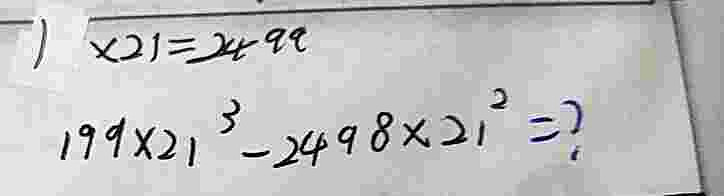 ) ×21=2499
199×21³-2498×21²=?